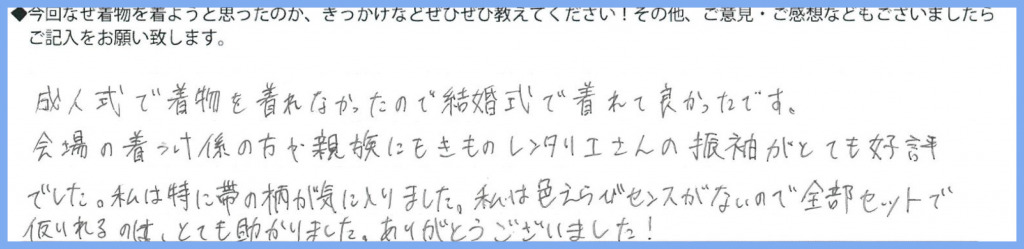 ◆今回なぜ着物を着ようと思ったのか、きっかけなどぜひぜひ教えてください！その他、ご意見・ご感想などもございましたら
ご記入をお願い致します。
成人式で着物を着れなかったので結婚式で着れて良かったです。
会場の着つけ係の方や親族にもきものレンタリエさんの振袖がとても好評
でした。私は特に帯の柄が気に入りました。私は色えらびセンスがないので全部セットで
仮りれるのは、とても助かりました。ありがとうございました！